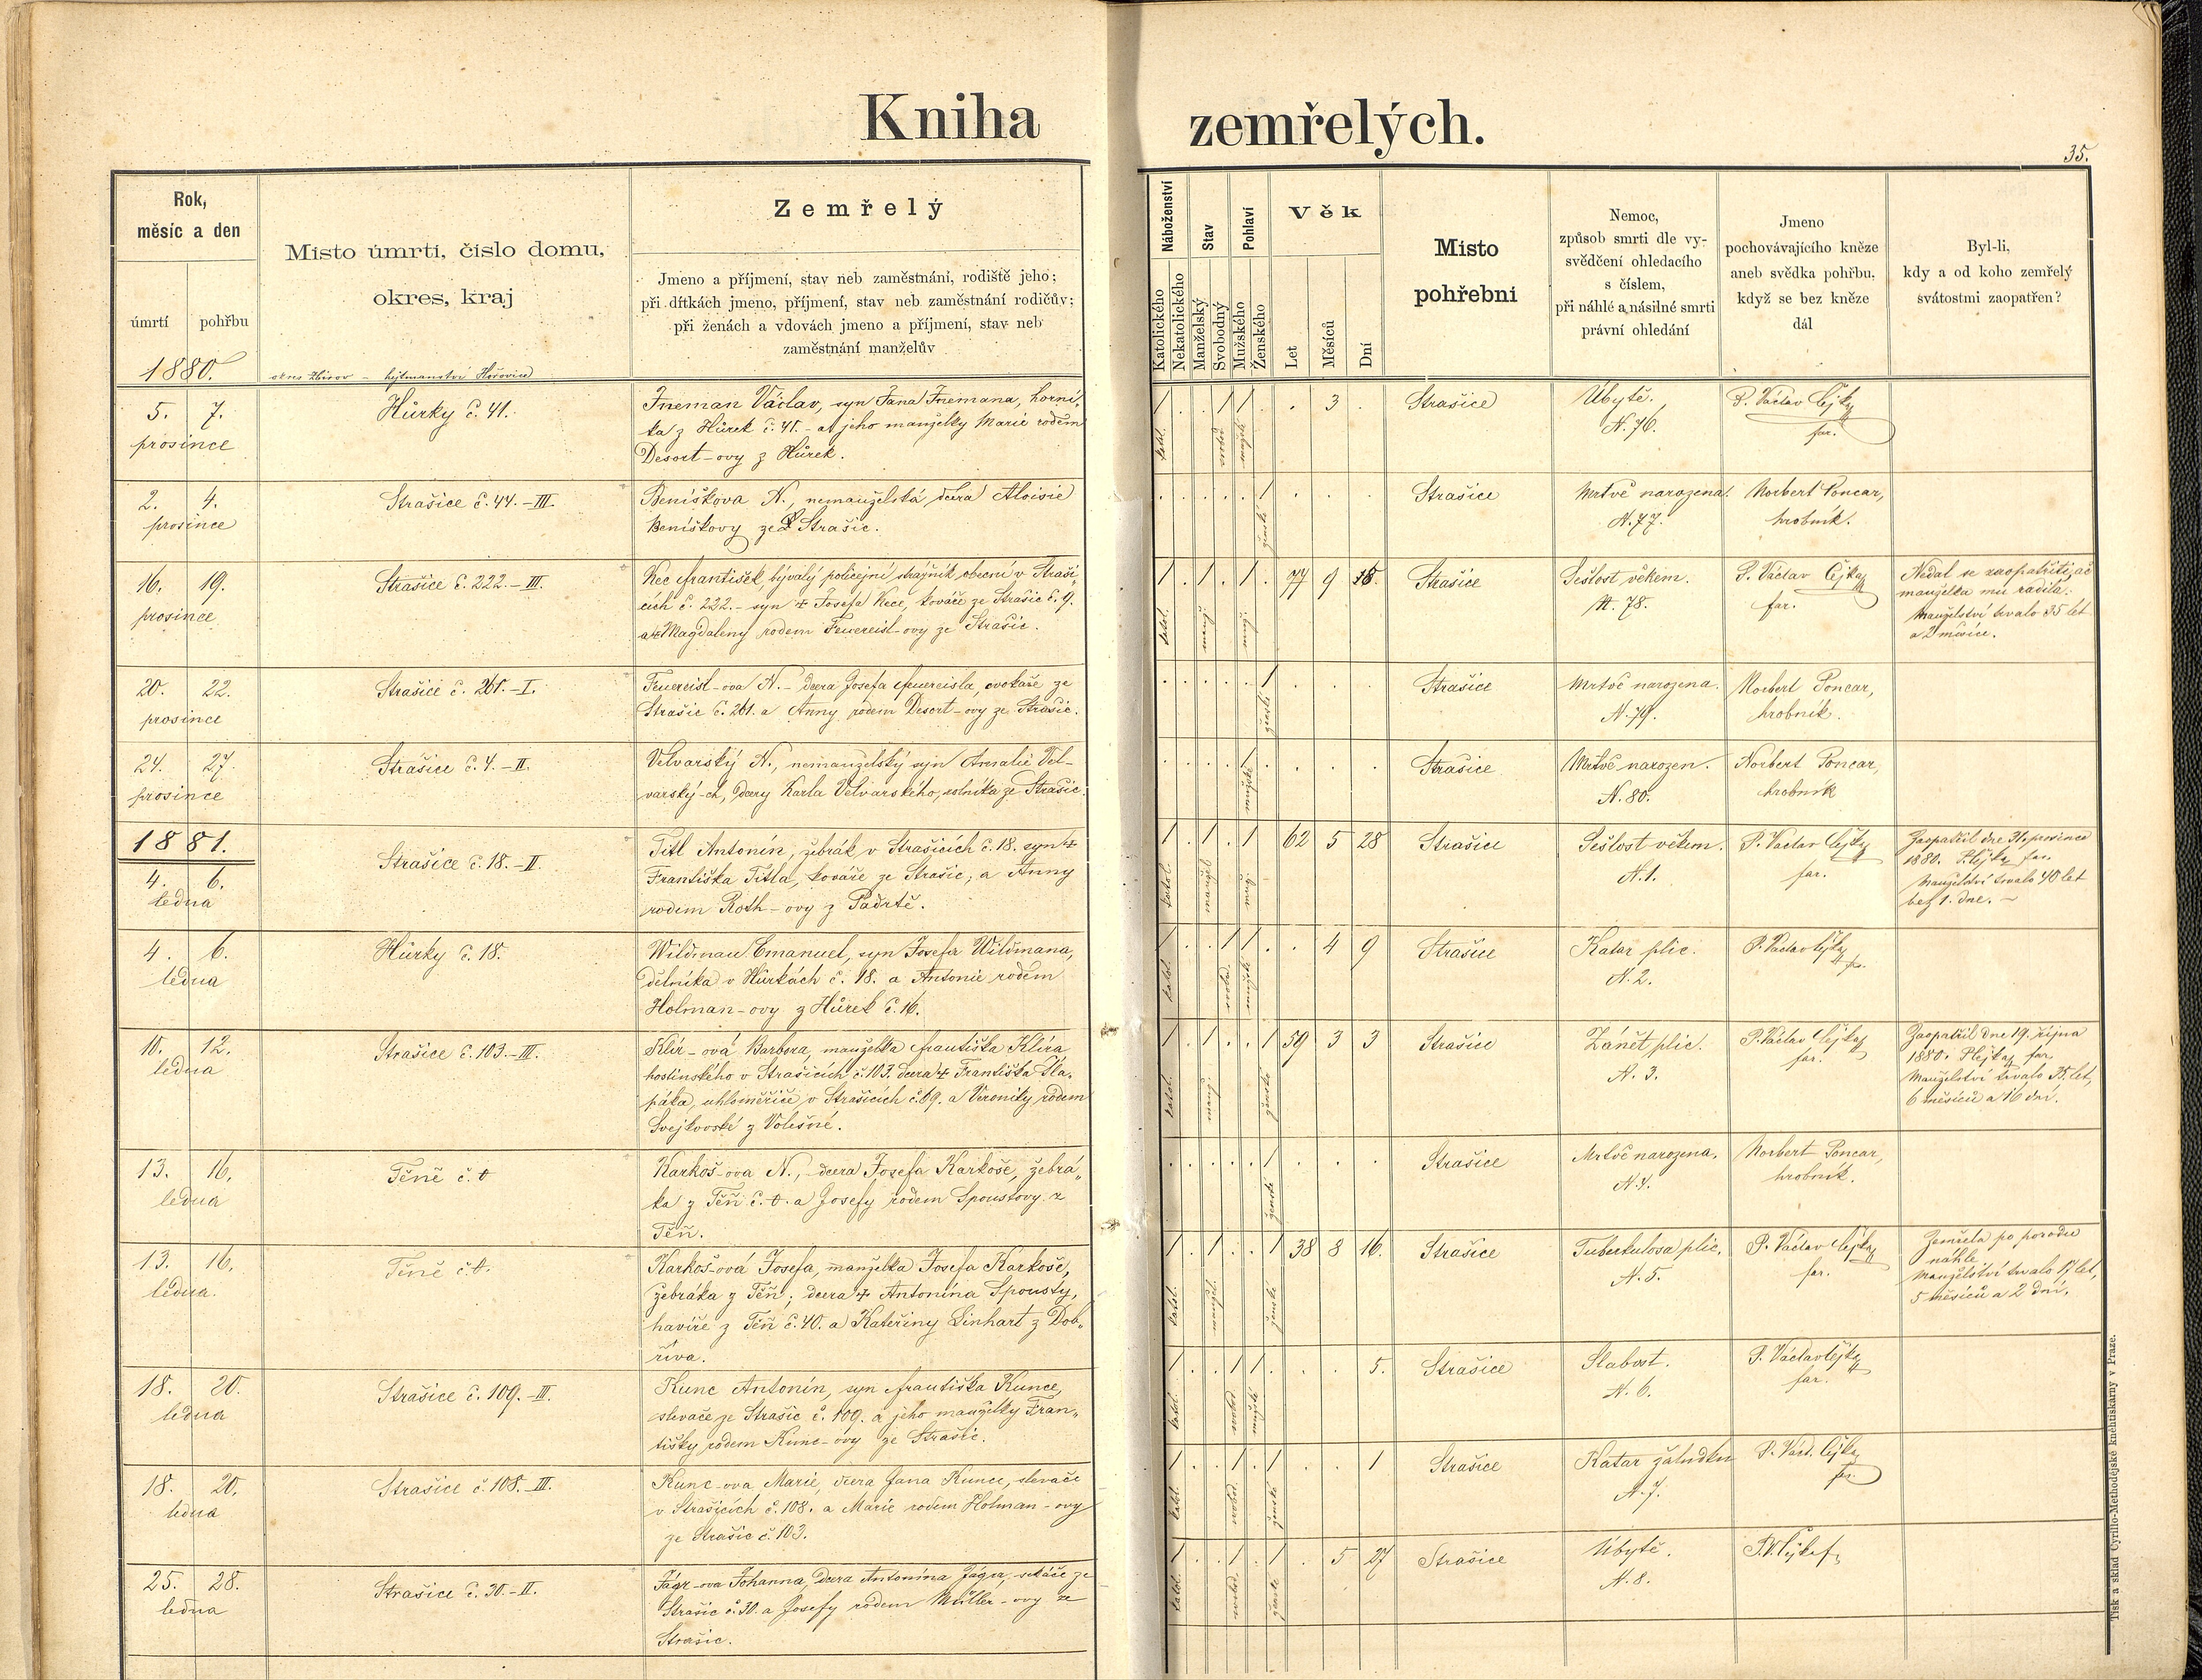 Kniha zemřelých.
35.
Rok,
měsíc a den
úmrtí pohřbu
1880.
Místo úmrtí, číslo domu,
okres, kraj
okres Zbirov – hejtmanství Hořovice
Zemřelý
Jmeno a příjmení, stav neb zaměstnání, rodiště jeho;
při dítkách jmeno, příjmení, stav neb zaměstnání rodičův;
při ženách a vdovách jmeno a příjmení, stav neb
zaměstnání manželův
Náboženství
Katolického
Nekatolického
Stav
Manželský
Svobodný
Pohlaví
Mužského
Ženského
Věk
Let
Měsíců
Dní
Místo
pohřební
Nemoc,
způsob smrti dle vy-
svědčení ohledacího
s číslem,
při náhlé a násilné smrti
právní ohledání
Jmeno
pochovávajícího kněze
aneb svědka pohřbu,
když se bez kněze
dál
Byl-li,
kdy a od koho zemřelý
svátostmi zaopatřen?
5. 7.
prosince
Hůrky č. 41.
Fneman Václav, syn Jana Fnemana, horní-
ka z Hůrek č. 41. – a jeho manželky Marie rodem
Desort-ovy z Hůrek.
1 . . 1 1 . . 3 .
katol. svobod. mužské
Strašice
Úbytě.
N. 76.
P. Václav Čejka
far.
2. 4.
prosince
Strašice č. 44. – III.
Beníškova N., nemanželská dcera Aloisie
Beníškovy ze Strašic.
. . . . . 1 . . .
ženské
Strašice
Mrtvě narozena.
N. 77.
Norbert Poncar,
hrobník.
16. 19.
prosince
Strašice č. 222. – III.
Kec František, bývalý policejní strážník obecní v Straši-
cích č. 222. – syn + Josefa Kece, kováře ze Strašic č. 9.
a + Magdaleny rodem Feuereisl-ovy ze Strašic.
1 . 1 . 1 . 77 9 18.
katol. manž. muž.
Strašice
Sešlost věkem.
N. 78.
P. Václav Čejka
far.
Nedal se zaopatřiti, ač
manželka mu radila.
Manželství trvalo 35 let
a 2 měsíce.
20. 22.
prosince
Strašice č. 261. – I.
Feuereisl-ova N. – dcera Josefa Feuereisla, cvokaře ze
Strašic č. 261. a Anny rodem Desort-ovy ze Strašic.
. . . . . 1 . . .
ženské
Strašice
Mrtvě narozena.
N. 79.
Norbert Poncar,
hrobník.
24. 27.
prosince
Strašice č. 4. – II.
Velvarský N., nemanželský syn Amalie Vel-
varský-ch, dcery Karla Velvarského, rolníka ze Strašic.
. . . . 1 . . . .
mužské
Strašice
Mrtvě narozen.
N. 80.
Norbert Poncar,
hrobník
1881.
4. 6.
ledna
Strašice č. 18. – II.
Titl Antonín, žebrák v Strašicích č. 18. syn +
Františka Titla, kováře ze Strašic, a Anny
rodem Roth-ovy z Padrtě.
1 . 1 . 1 . 62 5 28
katol. manžel. muž.
Strašice
Sešlost věkem.
N. 1.
P. Václav Čejka
far.
Zaopatřil dne 31. prosince
1880. P. Čejka far.
Manželství trvalo 40 let
bez 1. dne. –
4. 6.
ledna
Hůrky č. 18.
Wildman Emanuel, syn Josefa Wildmana,
dělníka v Hůrkách č. 18. a Antonie rodem
Holman-ovy z Hůrek č. 16.
1 . . 1 1 . . 4 9
katol. svobod. mužské
Strašice
Katar plic.
N. 2.
P. Václav Čejka
far.
10. 12.
ledna
Strašice č. 103. – III.
Klír-ová Barbora, manželka Františka Klíra
hostinského v Strašicích č. 103. dcera + Františka Šla-
páka, uhloměřiče v Strašicích č. 69. a Veroniky rodem
Svejkovské z Volešné.
1 . 1 . . 1 59 3 3
katol. manž. ženské
Strašice
Zánět plic.
N. 3.
P. Václav Čejka
far.
Zaopatřil dne 19. října
1880. P. Čejka far.
Manželství trvalo 35 let,
6 měsíců a 16 dní.
13. 16.
ledna
Těně č. 0
Karkoš-ova N., dcera Josefa Karkoše, žebrá-
ka z Těň č. 0. a Josefy rodem Spoustovy z
Těň.
. . . . . 1 . . .
ženské
Strašice
Mrtvě narozena.
N. 4.
Norbert Poncar,
hrobník.
13. 16.
ledna.
Těně č. 0.
Karkoš-ová Josefa, manželka Josefa Karkoše,
žebráka z Těň; dcera + Antonína Spousty,
havíře z Těň č. 40. a Kateřiny Linhart z Dob-
říva.
1 . 1 . . 1 38 8 16.
katol. manžel. ženské
Strašice
Tuberkulosa plic.
N. 5.
P. Václav Čejka
far.
Zemřela po porodu
náhle.
Manželství trvalo 17 let,
5 měsíců a 2 dní.
18. 20.
ledna
Strašice č. 109. – III.
Kunc Antonín, syn Františka Kunce,
slevače ze Strašic č. 109. a jeho manželky Fran-
tišky rodem Kunc-ovy ze Strašic.
1 . . 1 1 . . . 5.
katol. svobod. mužské
Strašice
Slabost.
N. 6.
P. Václav Čejka
far.
18. 20.
ledna
Strašice č. 108. – III.
Kunc-ova Marie, dcera Jana Kunce, slevače
v Strašicích č. 108. a Marie rodem Holman-ovy
ze Strašic č. 103.
1 . . 1 . 1 . . 1
katol. svobod. ženské
Strašice
Katar žaludku
N. 7.
P. Václ. Čejka
far.
25. 28.
ledna
Strašice č. 30. – II.
Jágr-ova Johanna, dcera Antonína Jágra, sekáče ze
Strašic č. 30. a Josefy rodem Müller-ovy ze
Strašic.
1 . . 1 . 1 . 5 27
katol. svobod. ženské
Strašice
Úbytě.
N. 8.
P. V. Čejka f.
Tisk a sklad Cyrillo-Methodějské knihtiskárny v Praze.